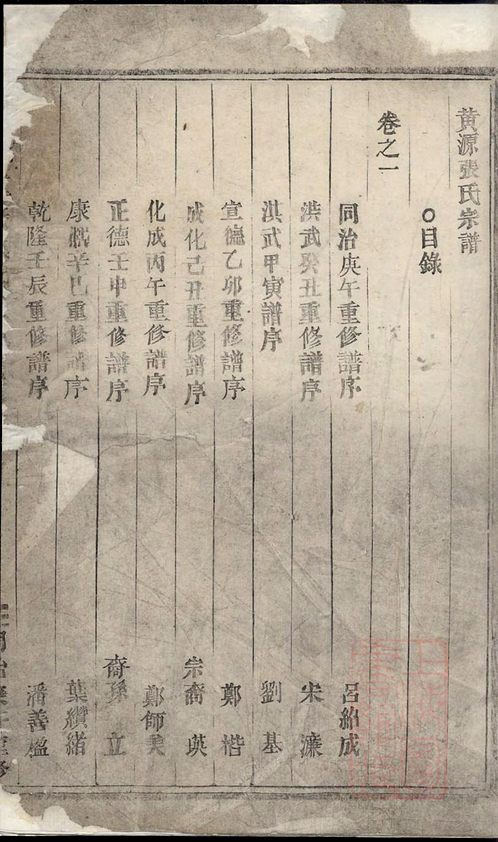 黃源張氏宗譜
○目錄
卷之一
同治庚午重修譜序 呂紹成
洪武癸丑重修譜序 宋濂
洪武甲寅譜序 劉基
宣德乙卯重修譜序 鄭楷
成化己丑重修譜序 宗裔 瑛
化成丙午重修譜序 鄭師美
正德壬申重修譜序 裔孫 立
康熙辛巳重修譜序 葉纘緒
乾隆壬辰重修譜序 潘善楹